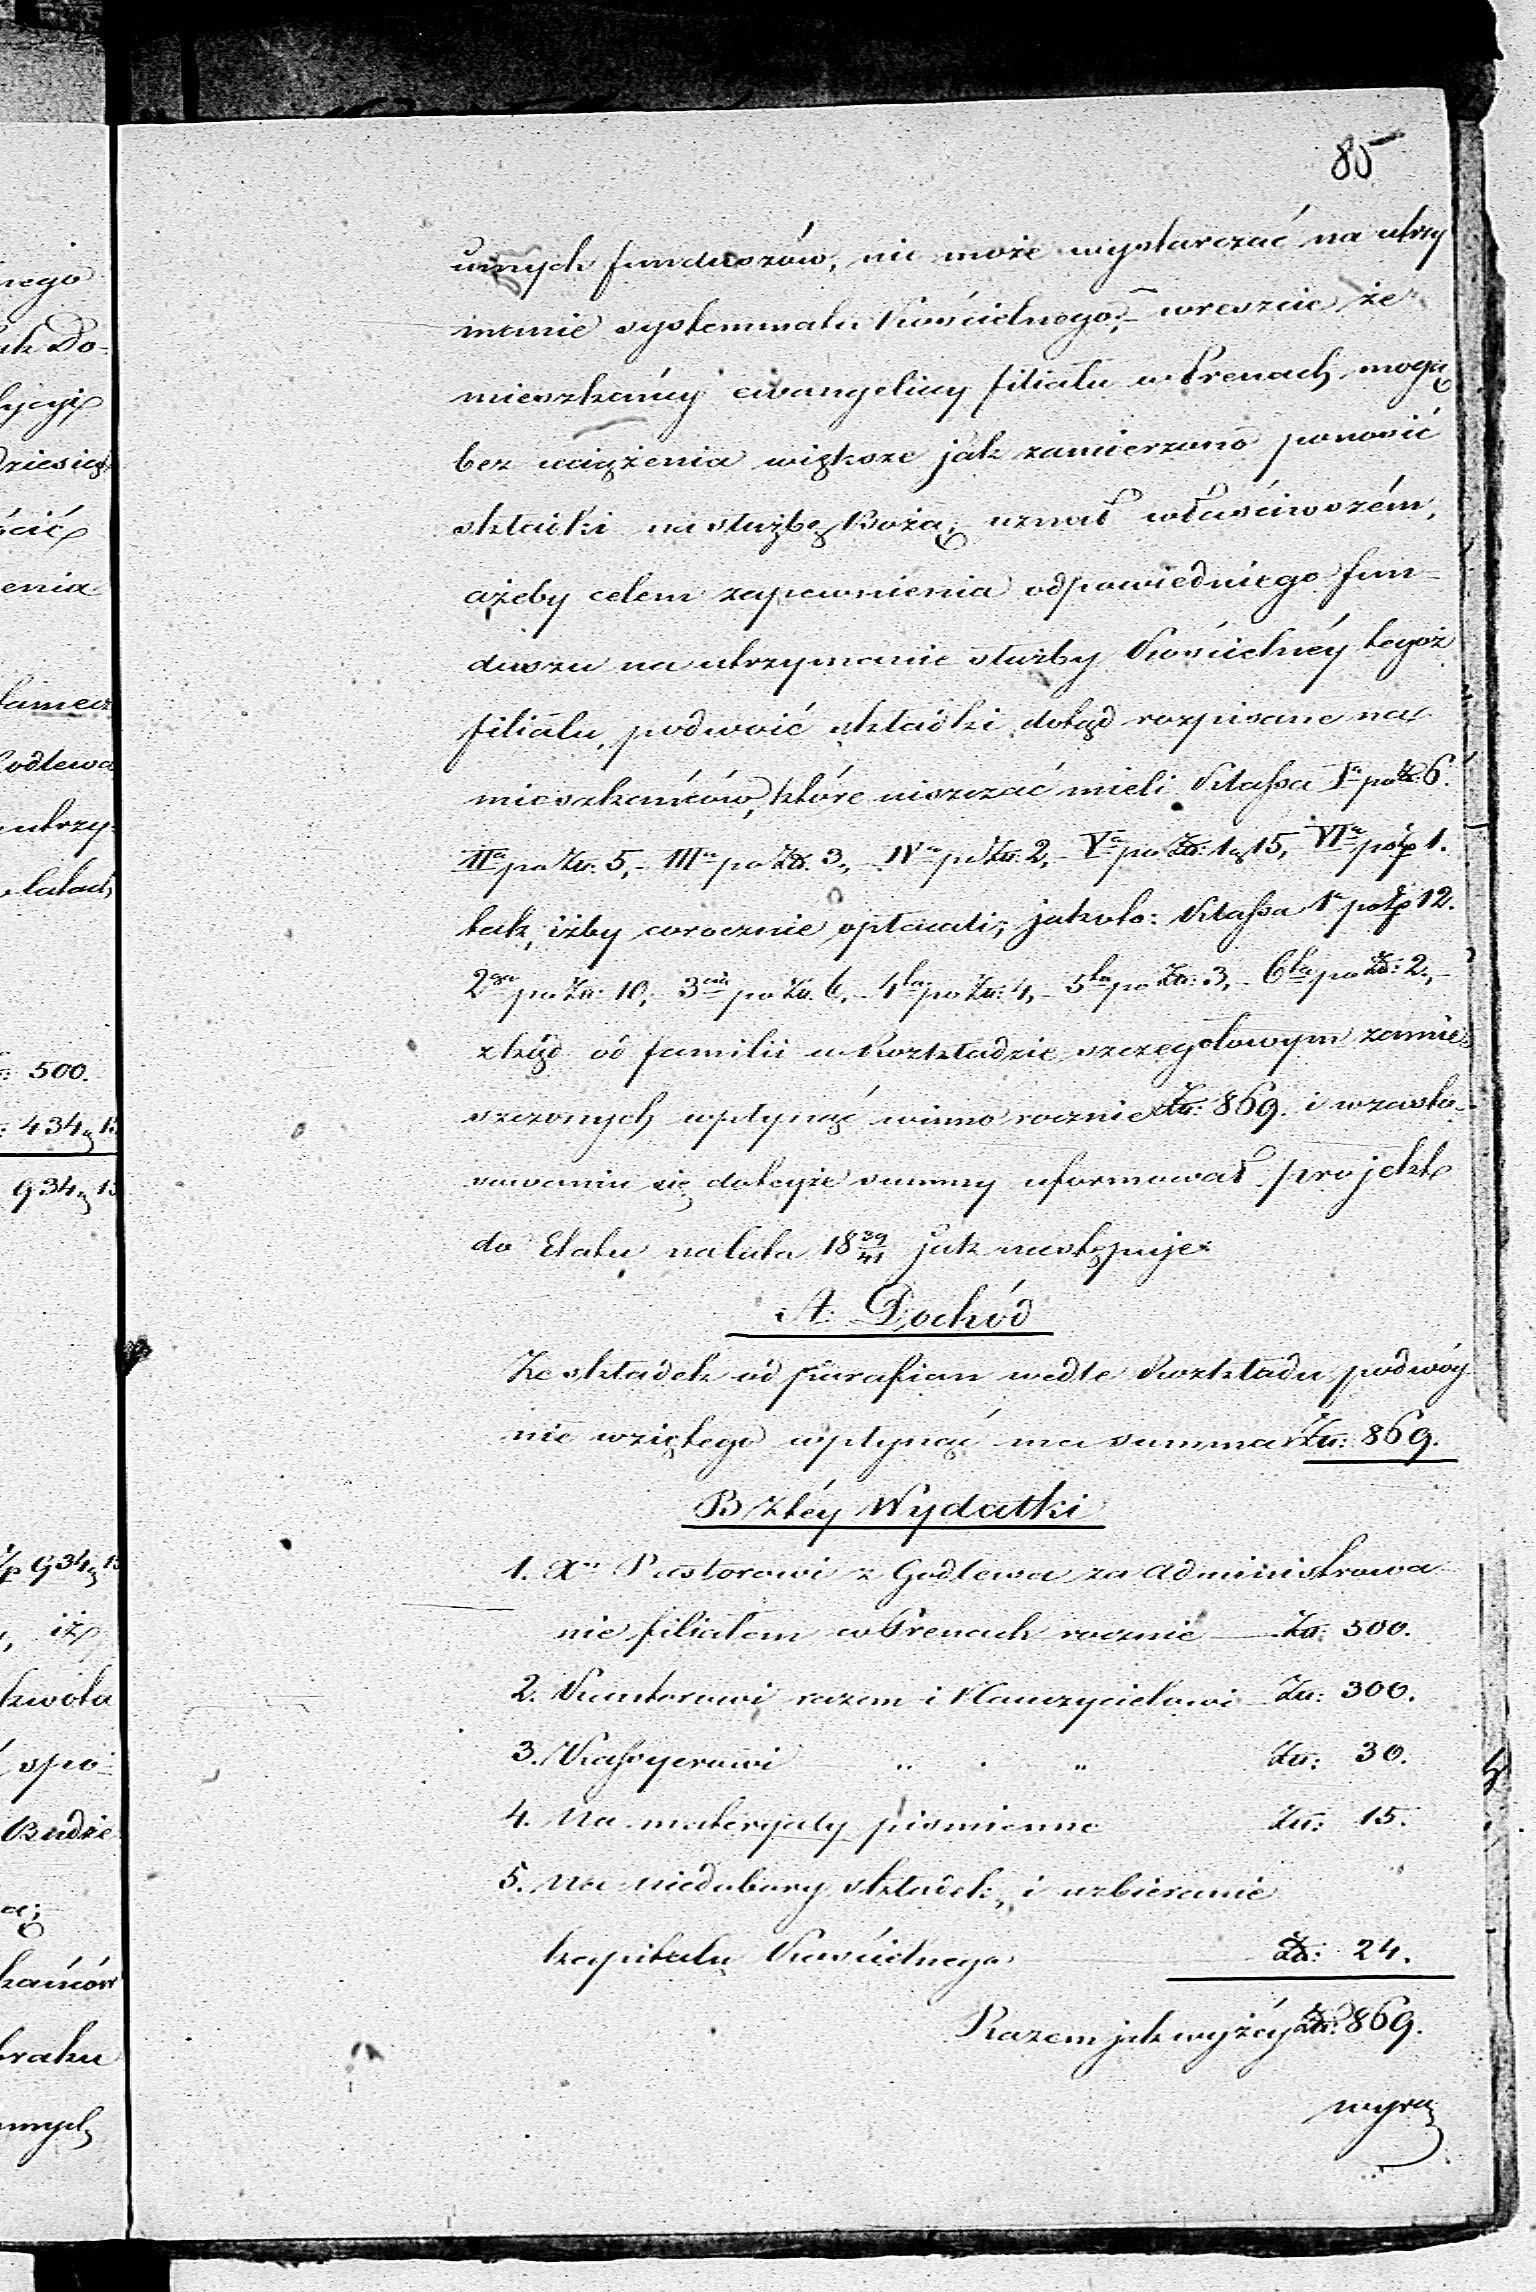 85
innych funduszów, nie może wystarczać na utrzy
manie systemmatu Kościelnego; – wreszcie że
mieszkańcy ewangeliccy filiału w Prenach mogą
bez uciążenia większe jak zamierzono ponosić
składki na służbę Bożą; uznał właściwszém,
ażeby celem zapewnienia odpowiedniego fun-
duszu na utrzymanie służby Kościelnéy tegoż
filiału, podwoić składki dotąd rozpisane na
mieszkańców, które uiszczać mieli Klassa Iª po Złł: 6.
IIª po Złł: 5, – IIIª po Złł: 3, – IVª po Złł: 2, – Vª po Złł: 1 g 15, VIª po Złp 1.
tak, iżby corocznie opłacali; jakoto: Klassa 1ª po Złp 12.
2ga po Złł: 10, – 3cia po Złł: 6, – 4ta po Złł: 4, – 5ta po Złł: 3, – 6ta po Złł: 2, –
zkąd od familii w Rozkładzie szczegółowym zamie-
szczonych wpłynąć winno rocznie Złł: 869. i w zasto-
sowaniu się do teyże summy uformował projekt
do Etatu na lata 18 39/41 jak następuje:
A. Dochód
Ze składek od parafian wedle Rozkładu podwóy
nie wziętego wpłynąć ma summa Złł: 869.
B Z téy Wydatki
1. Xu Pastorowi z Godlewa za administrowa
nie filiałem w Prenach rocznie — Złł: 500.
2. Kantorowi razem i Nauczycielowi Złł: 300.
3. Kassyerowi " . " Złł: 30.
4. Na materyały piśmienne Złł: 15.
5. Na niedobory składek, i uzbieranie
kapitału Kościelnego Złł: 24.
Razem jak wyżéy Złł: 869.
wyra